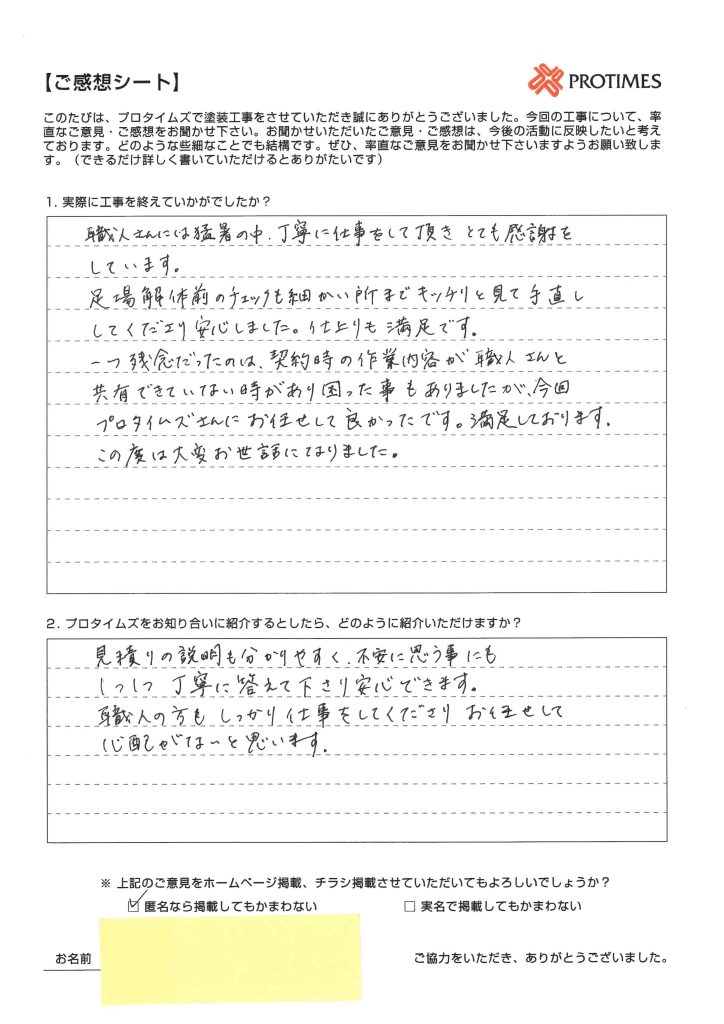 【ご感想シート】
PROTIMES
このたびは、プロタイムズで塗装工事をさせていただき誠にありがとうございました。今回の工事について、率
直なご意見・ご感想をお聞かせ下さい。お聞かせいただいたご意見・ご感想は、今後の活動に反映したいと考え
ております。どのような些細なことでも結構です。ぜひ、率直なご意見をお聞かせ下さいますようお願い致しま
す。（できるだけ詳しく書いていただけるとありがたいです）
1. 実際に工事を終えていかがでしたか？
職人さんには猛暑の中、丁寧に仕事をして頂き とても感謝を
しています。
足場解体前のチェックも細かい所までキッチリと見て手直し
してくださり安心しました。仕上りも満足です。
一つ残念だったのは、契約時の作業内容が職人さんと
共有できていない時があり困った事もありましたが、今回
プロタイムズさんにお任せして良かったです。満足しております。
この度は大変お世話になりました。
2. プロタイムズをお知り合いに紹介するとしたら、どのように紹介いただけますか？
見積りの説明も分かりやすく、不安に思う事にも
1つ1つ 丁寧に答えて下さり安心できます。
職人の方も しっかり仕事をしてくださり お任せして
心配がないと思います。
※ 上記のご意見をホームページ掲載、チラシ掲載させていただいてもよろしいでしょうか？
☑ 匿名なら掲載してもかまわない □ 実名で掲載してもかまわない
お名前 ご協力をいただき、ありがとうございました。